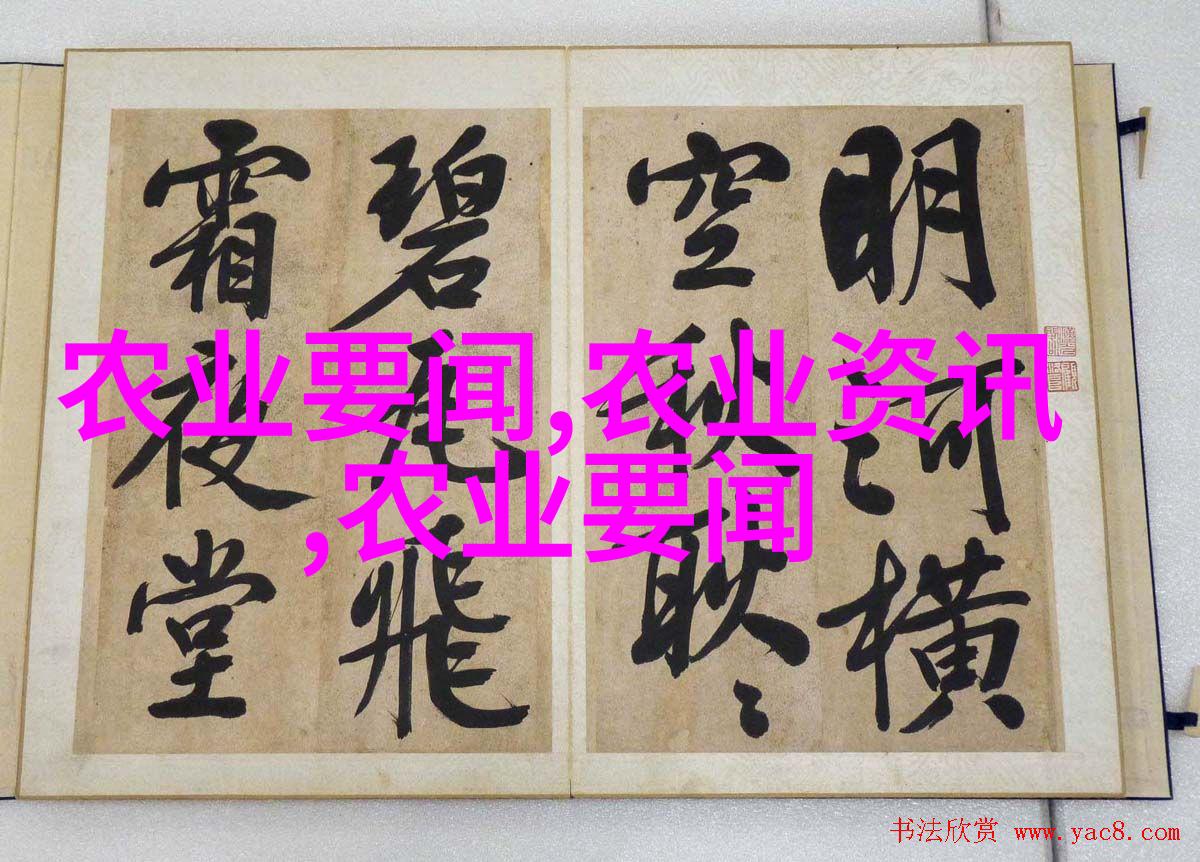 明河横
空秋耿〻
碧瓦飛
霜夜堂
农业要闻,农业资讯
,农业要闻
书法欣赏 www.yac8.com